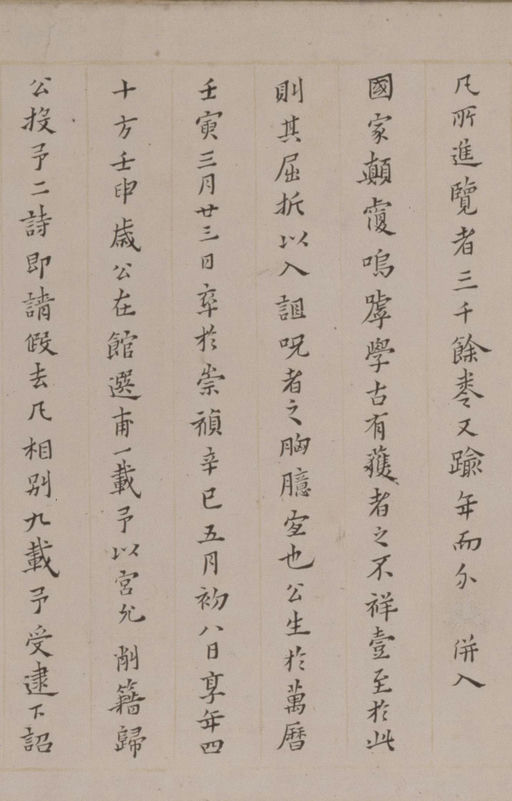 凡所進覽者三千餘卷又踰年而 併入
國家顛覆嗚虖學古有獲者之不祥壹至於此
則其屈折以入詛呪者之胸臆宜也公生於萬曆
壬寅三月廿三日卒於崇禎辛巳五月初八日享年四
十方壬申歲公在館選甫一載予以宮允削籍歸
公投予二詩即請假去凡相別九載予受逮下詔